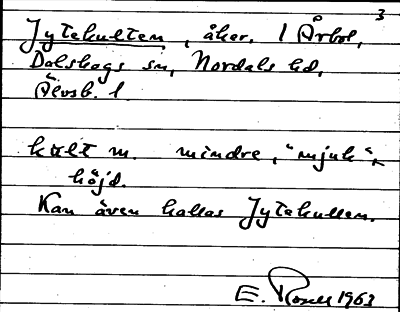 3
Jytekulten, åker, 1 Årbol,
Dalskogs sn, Nordals hd,
Älvsb. l.
kult m. mindre, "mjuk"
höjd.
Kan även kallas Jytekullen.
E. Rosell 1963